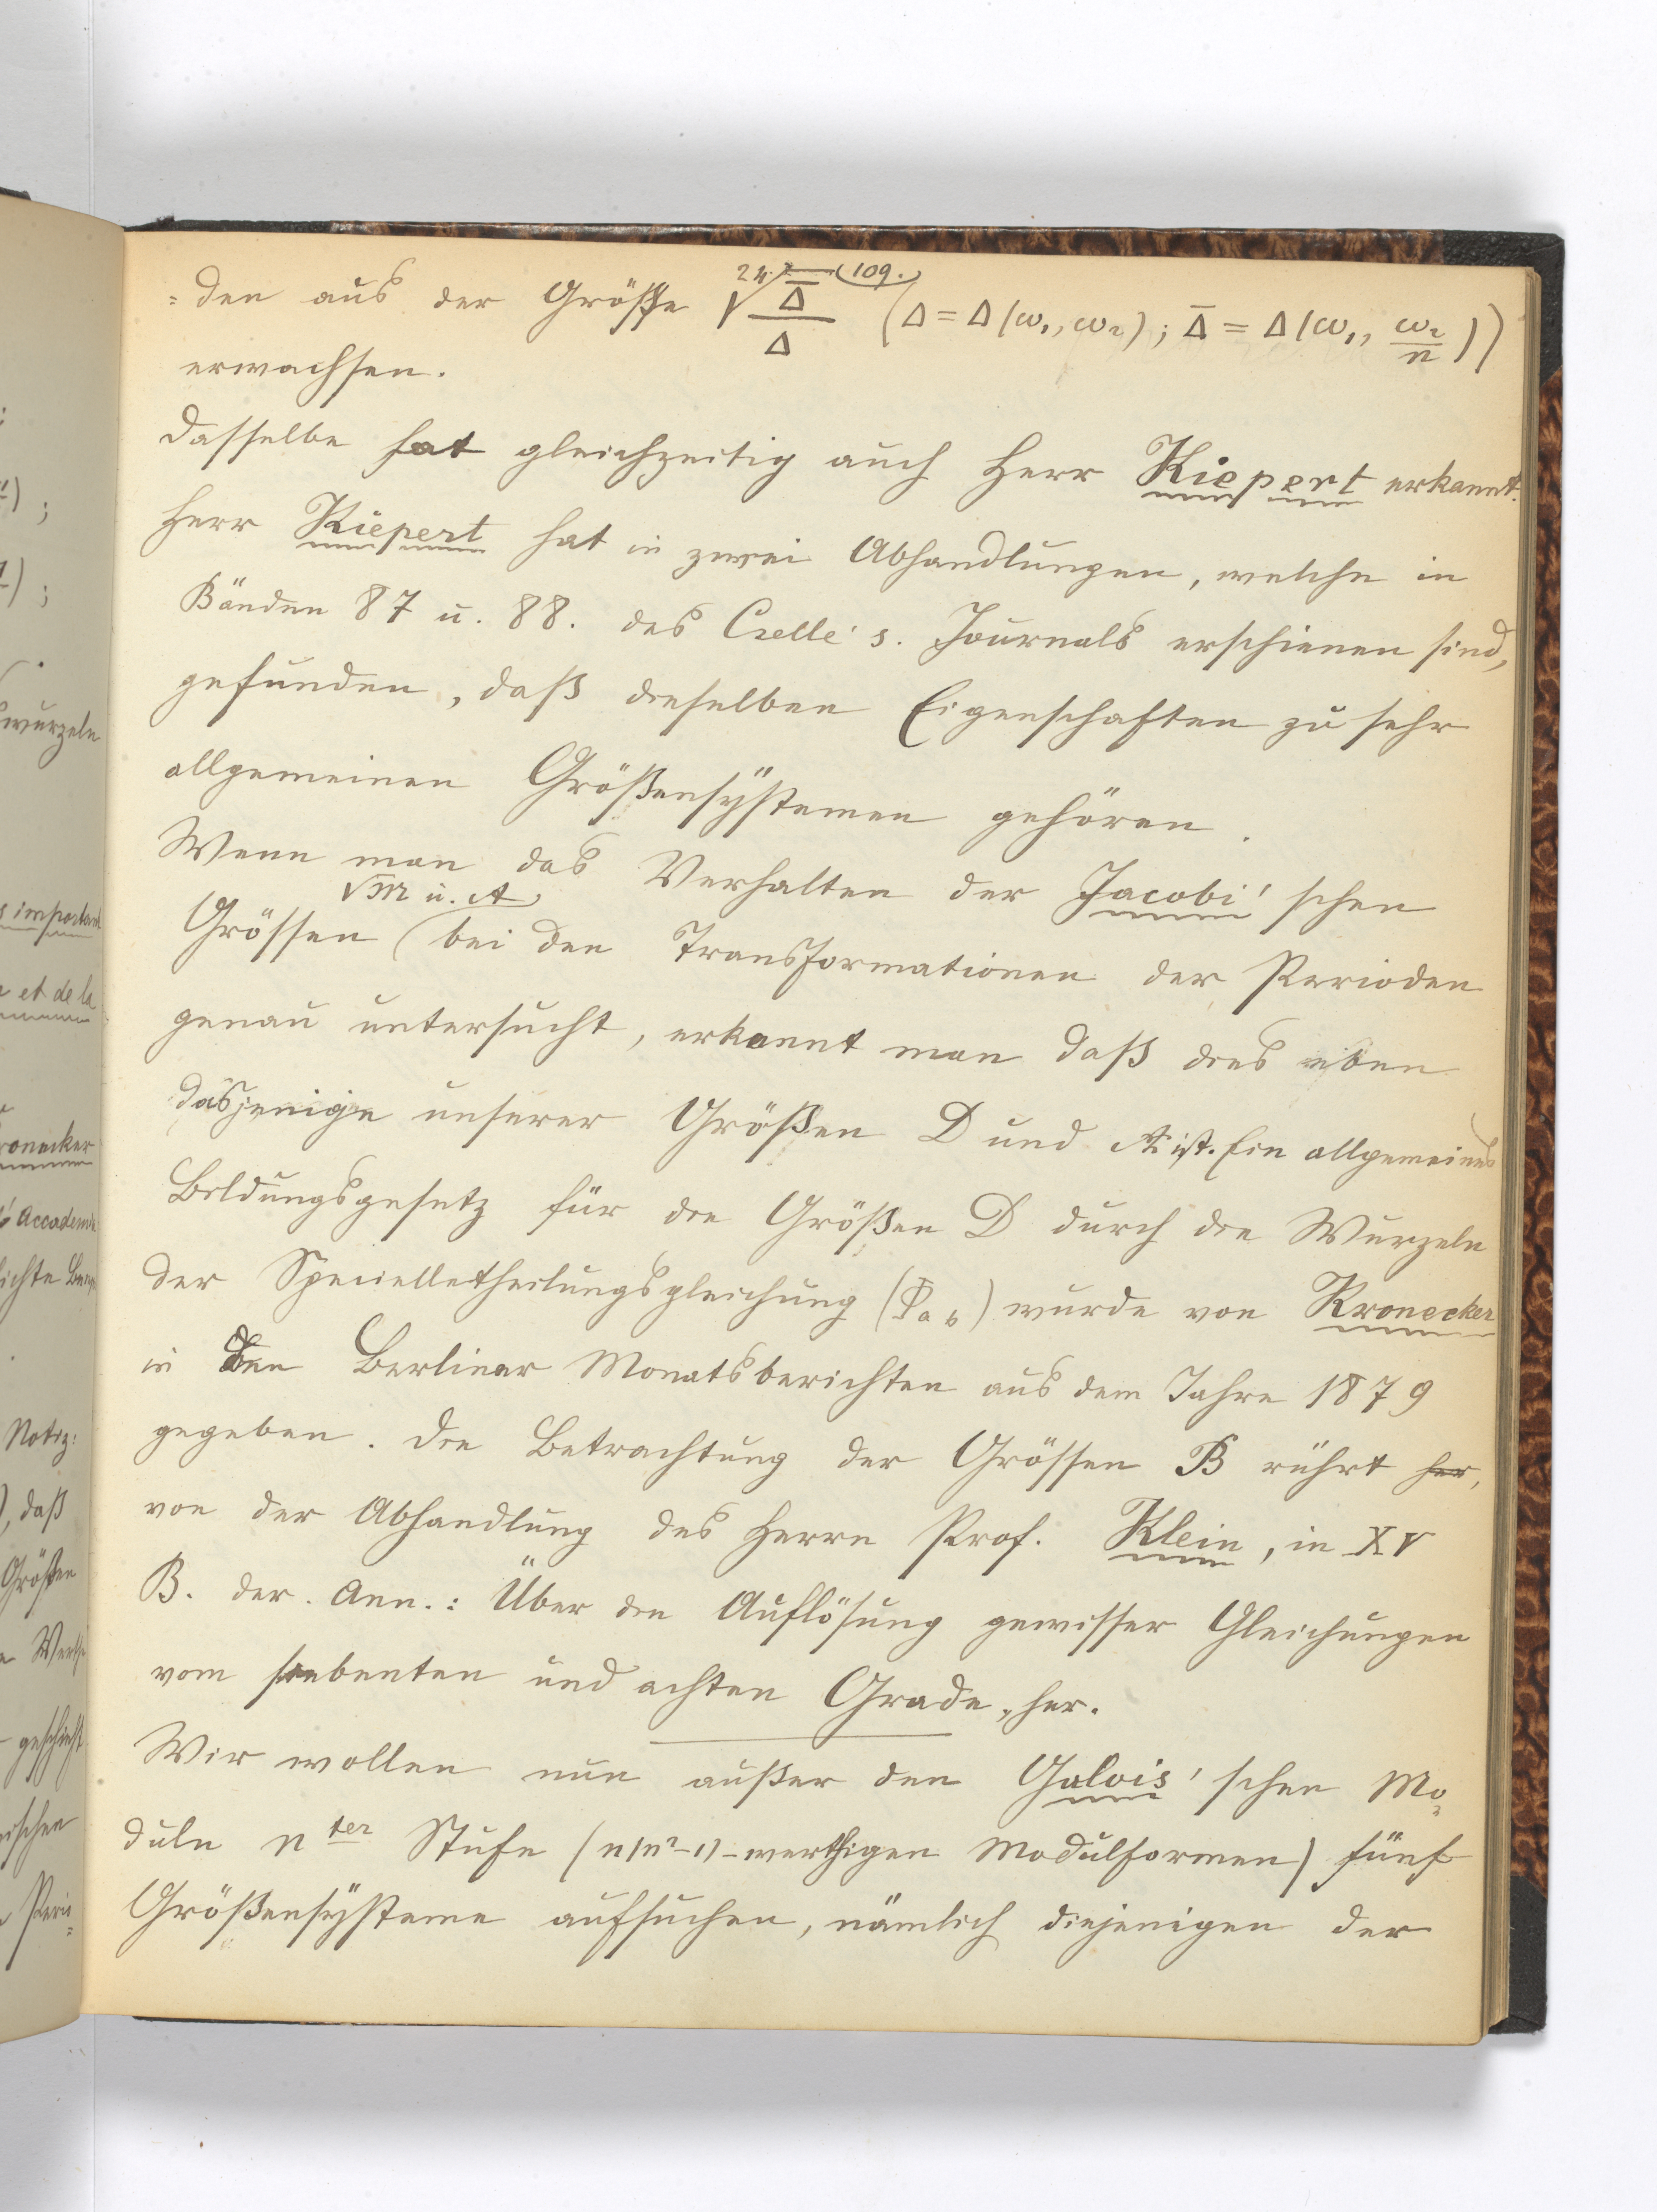 109.
=den aus der Größe \sqrt[24]{\frac{\overline{Δ}}{Δ}} (Δ = Δ(ω₁, ω₂); \overline{Δ} = Δ(ω₁, \frac{ω₂}{n}))
erwachsen.
Dasselbe hat gleichzeitig auch Herr Kiepert erkannt.
Herr Kiepert hat in zwei Abhandlungen, welche in
Bänden 87 u. 88. des Crelle's. Journals erschienen sind,
gefunden, daß dieselben Eigenschaften zu sehr
allgemeinen Größensystemen gehören.
Wenn man das Verhalten der Jacobi'schen
√M u. A
Grössen bei den Transformationen der Perioden
genau untersucht, erkannt man daß dies eben
dasjenige unserer Größen D und A ist. Ein allgemeines
Bildungsgesetz für die Größen D durch die Wurzeln
der Speciellentheilungsgleichung (φ a b) wurde von Kronecker
in den Berliner Monatsberichten aus dem Jahre 1879
gegeben. Die Betrachtung der Grössen B rührt her,
von der Abhandlung des Herrn Prof. Klein, in XV
B. der. Ann.: Über die Auflösung gewisser Gleichungen
vom siebenten und achten Grade, her.
Wir wollen nun außer den Galois'schen Mo=
duln n ter Stufe (n(n²-1)-werthigen Modulformen) fünf
Größensysteme aufsuchen, nämlich diejenigen der
wurzeln
et de la
Kronecker
Notiz:
, daß
Größen